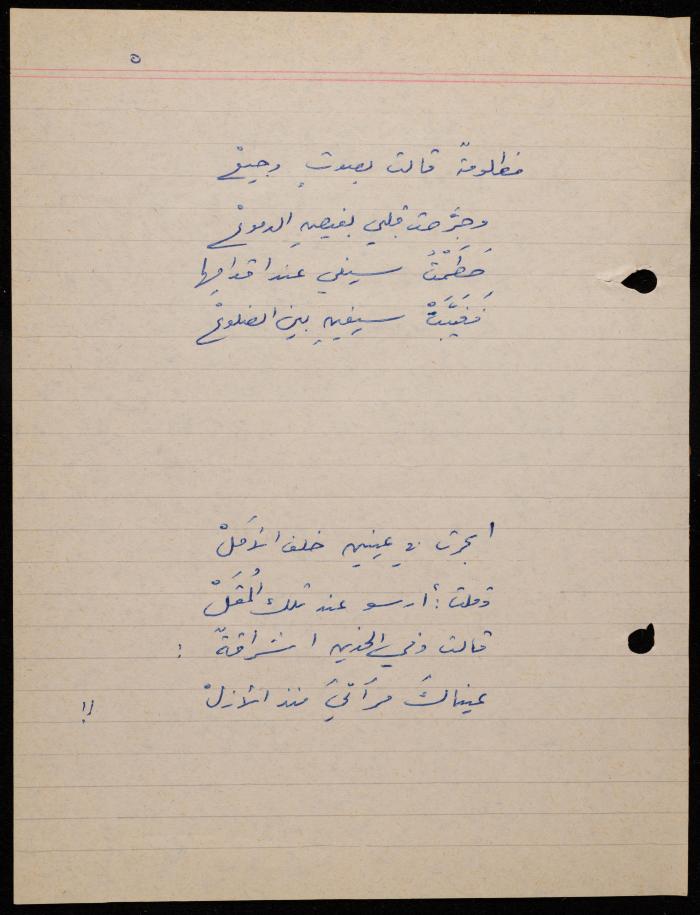 ٥
مظلومةٌ قالت بصوتٍ وجيعْ
وجرَّحت قلبي بفيضِ الدموعْ
حَطَمْتُ سيفي عند اقدامِها
فَغَيَّبَتْ سيفينِ بين الضلوعْ
ابحرت في عينيه خلف الأملْ
وقلت : أرسو عند تلك المُقَلْ
قالت وفي الخدين اشراقةٌ :
عيناكَ مرآتيَ منذ الأزلْ !!